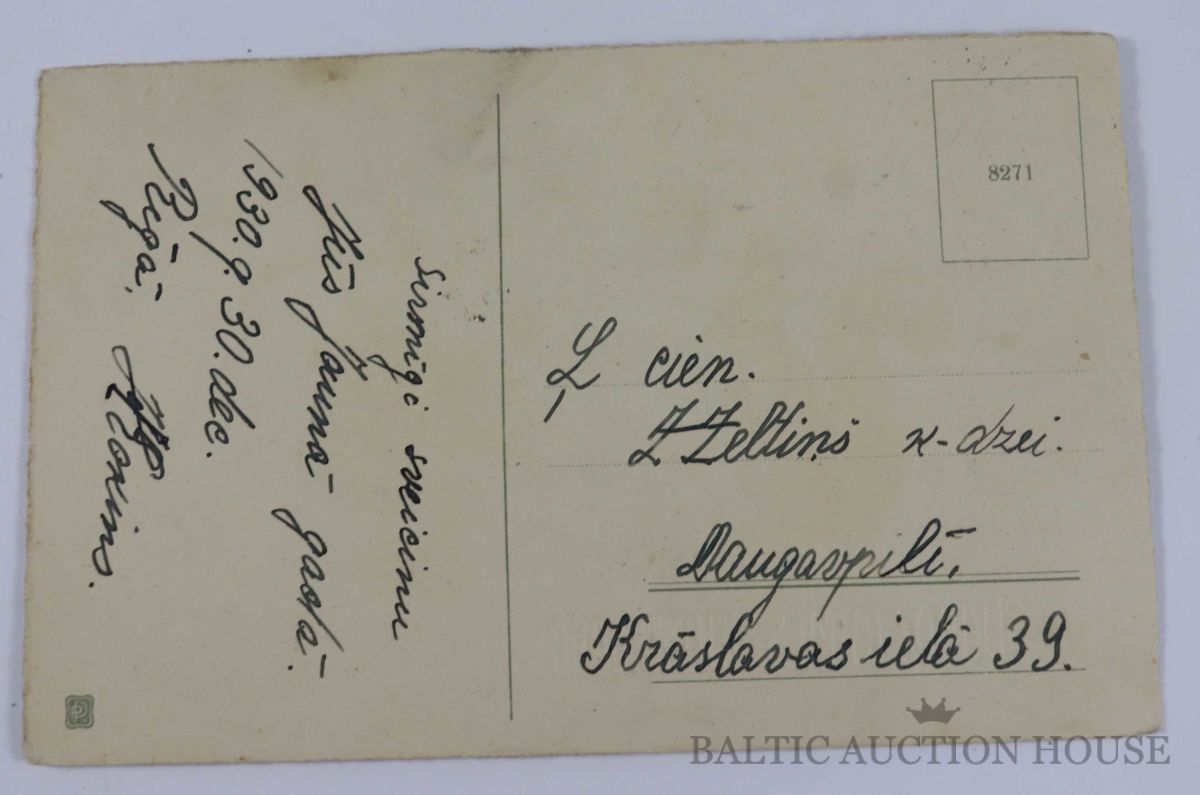 sirmīgi sveicinu
Jūs jaunā gadā.
1930.g. 30. dec.
Rīgā.
8271
Ļ cien.
Z Zeltiņš k-dzei.
Daugavpilī.
Krāslavas ielā 39.
BALTIC AUCTION HOUSE